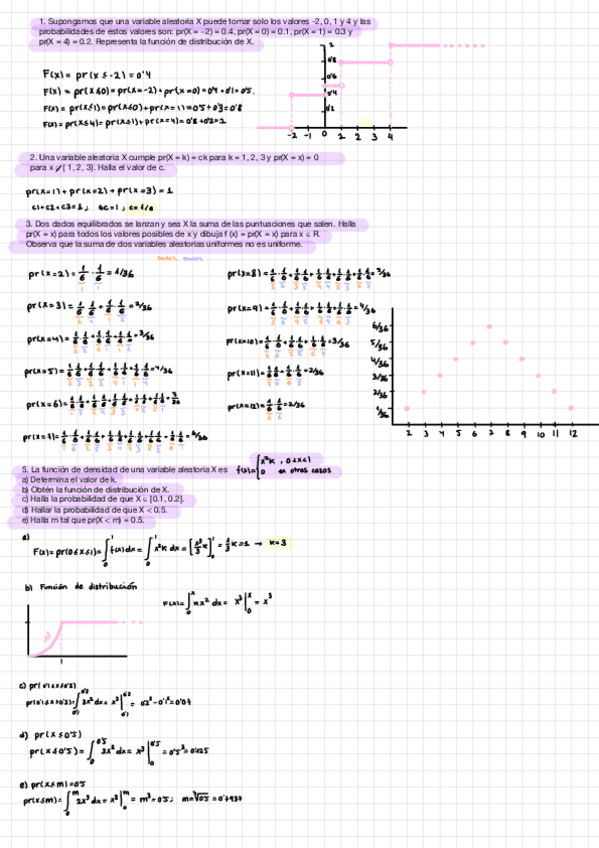 1. Supongamos que una variable aleatoria X puede tomar solo los valores -2, 0, 1 y 4 y las
probabilidades de estos valores son: pr(X = −2) = 0.4, pr(X = 0) = 0.1, pr(X = 1) = 0.3 y
pr(X = 4) = 0.2. Representa la función de distribución de X.
F(x) = pr(x ≤ -2) = 0'4
F(x) = pr(x ≤ 0) = pr(x=-2) + pr(x=0) = 0'4 + 0'1 = 0'5.
F(x) = pr(x≤1) = pr(x≤0) + pr(x=1) = 0'5 + 0'3 = 0'8
F(x) = pr(x≤4) = pr(x≤1) + pr(x=4) = 0'8 + 0'2 = 1
0'8
0'6
0'4
-2 -1 0 1 2 3 4
2. Una variable aleatoria X cumple pr(X = k) = ck para k = 1, 2, 3 y pr(X = x) = 0
para x ∉ { 1, 2, 3}. Halla el valor de c.
pr(x=1) + pr(x=2) + pr(x=3) = 1
6c = 1 ; c = 1/6
3. Dos dados equilibrados se lanzan y sea X la suma de las puntuaciones que salen. Halla
pr(X = x) para todos los valores posibles de x y dibuja f (x) = pr(X = x) para x ∈ R.
Observa que la suma de dos variables aleatorias uniformes no es uniforme.
pr(x=2) = 1/6 · 1/6 = 1/36
pr(x=3) = 1/6 · 1/6 + 1/6 · 1/6 = 2/36
pr(x=4) = 1/6 · 1/6 + 1/6 · 1/6 + 1/6 · 1/6 = 3/36
pr(x=5) = 1/6 · 1/6 + 1/6 · 1/6 + 1/6 · 1/6 + 1/6 · 1/6 = 4/36
pr(x=6) =
pr(x=7) =
pr(x=8) =
pr(x=9) =
pr(x=10) =
pr(x=11) = 1/6 · 1/6 + 1/6 · 1/6 = 2/36
pr(x=12) =
6/36
5/36
4/36
3/36
2/36
1/36
2 3 4 5 6 7 8 9 10 11 12
5. La función de densidad de una variable aleatoria X es f(x) = { x²k , 0<x<1
0 en otros casos
a) Determina el valor de k.
b) Obtén la función de distribución de X.
c) Halla la probabilidad de que X ∈ [0.1, 0.2].
d) Hallar la probabilidad de que X < 0.5.
e) Halla m tal que pr(X < m) = 0.5.
a)
F(x) = pr(0≤x≤1) = ∫₀¹ f(x) dx = ∫₀¹ x²k dx = [x³/3 k]₀¹ = 1/3 k = 1 → k = 3
b) Función de distribución
F(x) = ∫₀ˣ kx² dx = x³|₀ˣ = x³
x³
1
c) pr(0'1≤x≤0'2)
pr(0'1≤x≤0'2) = ∫ 3x² dx = x³| = 0'2³ - 0'1³ = 0'007
d) pr(x≤0'5)
pr(x≤0'5) = ∫ 3x² dx = x³| = 0'5³ = 0'125
e) pr(x≤m) = 0'5
pr(x≤m) = ∫₀ᵐ dx = x³|₀ᵐ = m³ = 0'5 ; m = ∛0'5 = 0'7937